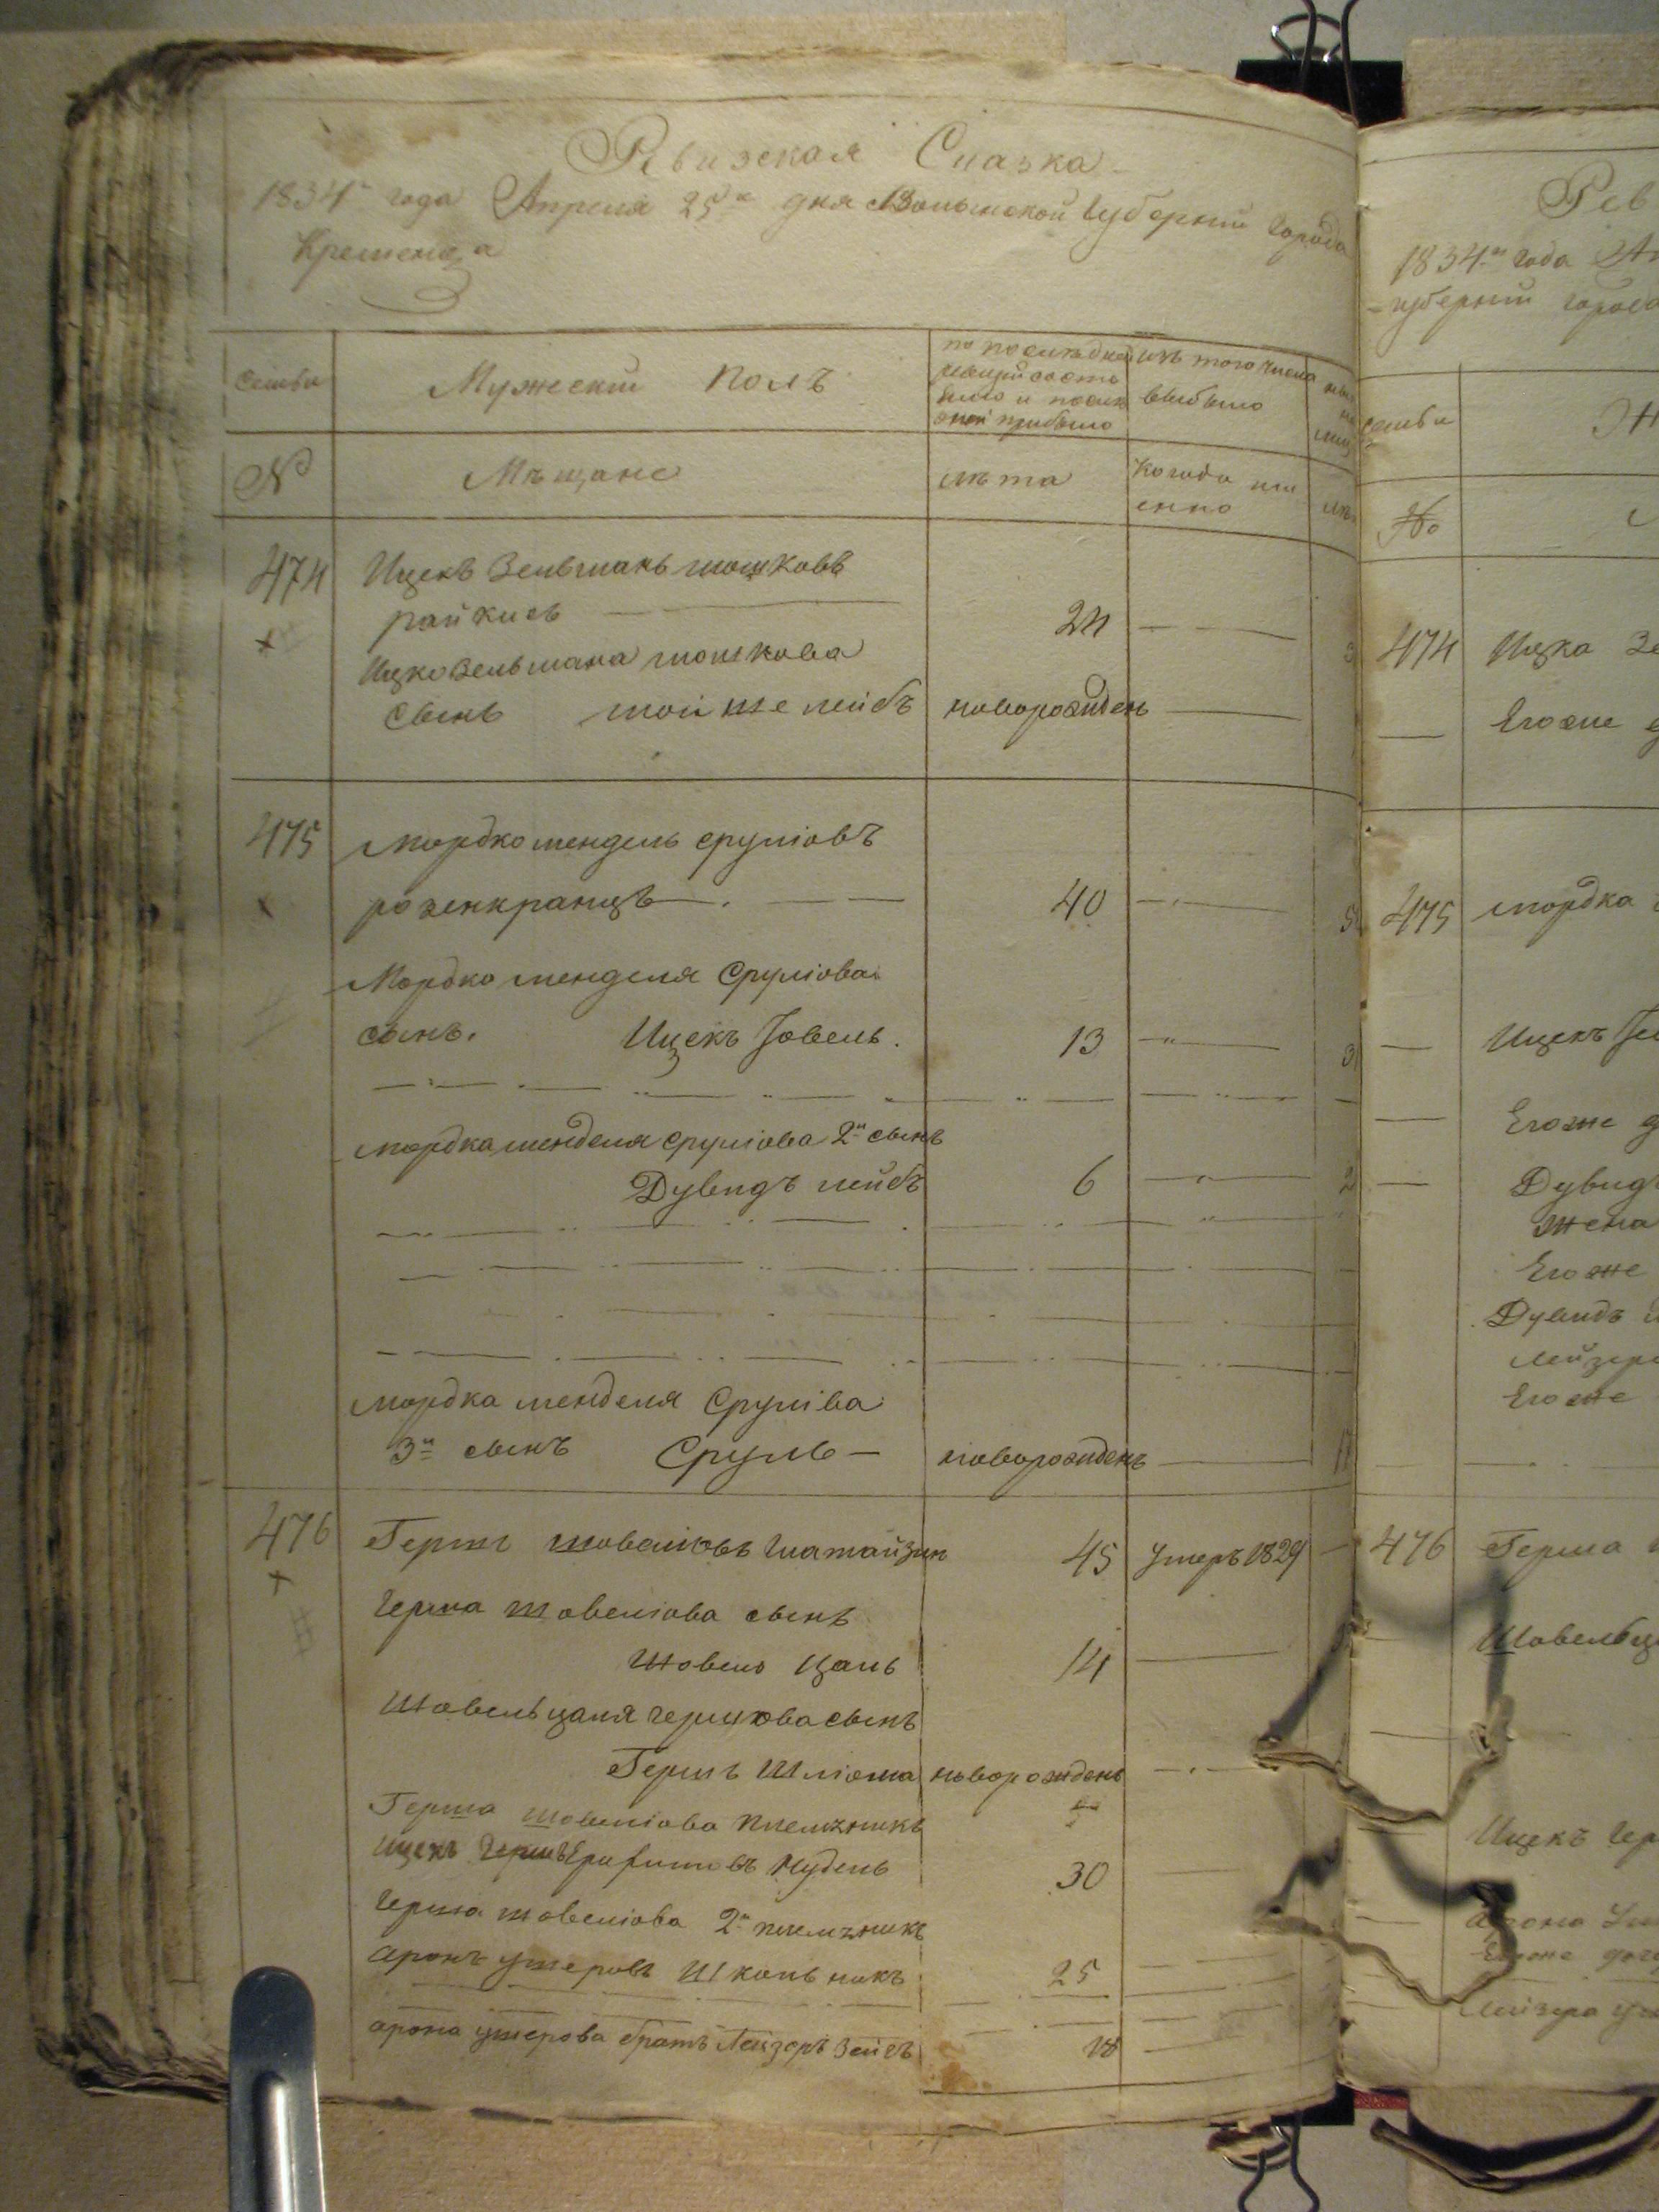 Ревизская Сказка
1834го года Апреля 25го дня Волынской Губернии Города
Кременца
семьи
Мужескій Полъ
по последней ревизіи состояло и после оной прибыло
изъ того числа выбыло
№
Мѣщане
лѣта
Когода именно
474
Ицекъ Зельманъ мошковъ
райхисъ
24
Ицко Зельмана мошкова
сынъ мойше лейбъ новорожденъ
475
Мордко мендель срулiовъ
розенкранцъ 40
Мордко менделя Срулiова
сынъ. Ицекъ Іовель. 13
мордка менделя срулiова 2й сынъ
Дувидъ лейбъ 6
мордка менделя Срулiва
3й сынъ Сруль новорожденъ
476
Гершъ шовелiовъ 45 умеръ 1829
Герша шовелiова сынъ
Шовель Цаль 14
Шовель цаля гершкова сынъ
Гершъ Шліома новорожденъ
Герша шовелiова племэникъ
Ицекъ Гершъ Нудель 30
Герша шовелiова 2й племэникъ
аронъ ушеровъ Школьникъ 25
арона ушерова братъ Лейзоръ Зейгъ 18
Рев
1834го года Ап
-губерніи города
семьи
Ж
№
474 Ицка Зе
Егоже
475 мордка
Ицекъ
Егоже
Дувидъ
жена
Егоже
Дувидъ
Лейзера
Егоже
476 Герша
Шовель
Ицекъ Гер
арона Уш
Егоже доч
Лейзора уш